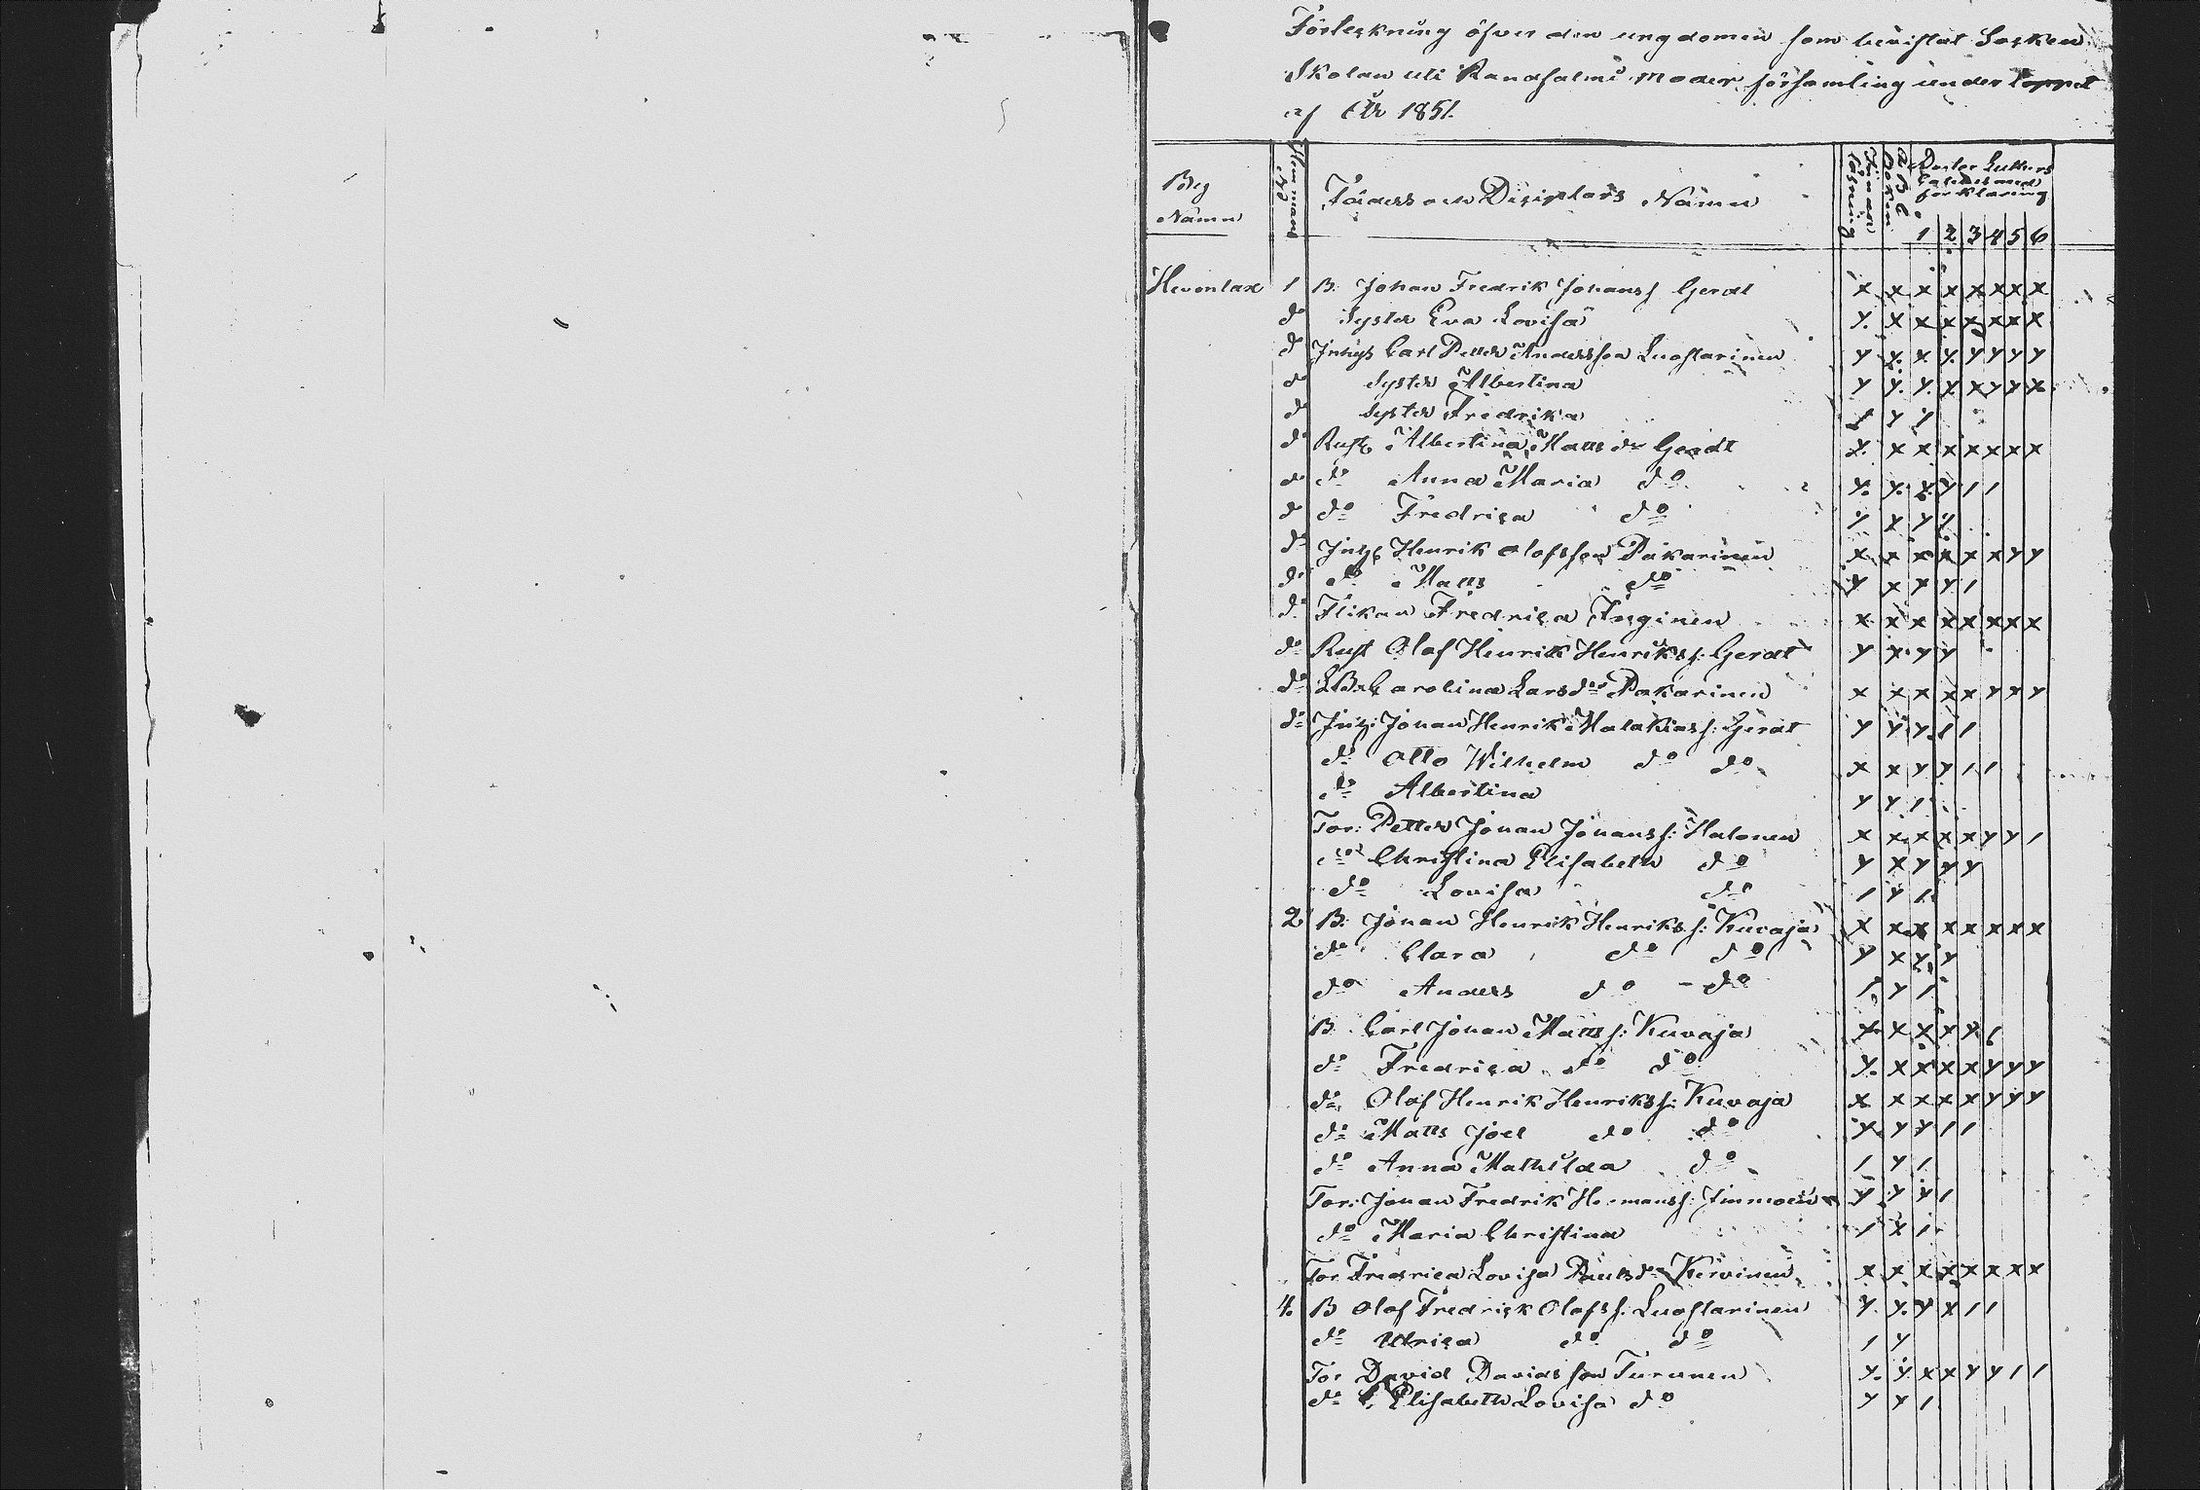 Förteckning öfver den ungdomen som bevistat Socken
Skolan uti Randsalmi moder församling under loppet
af År 1851.
By Namn
Hemmans No
Fäders och Disciplars Namn
Innan läsning
A B C Boken
Doctor Luthers Cateches med förklaring
1 2 3 4 5 6
Hevonlax 1 B. Johan Fredrik Johanss Gerdt x x x x x x x x
do Syster Eva Lovisa y. x x x x x x x
do Inhys Carl Petter Andersson Luostarinen y y. x. y. y y y y
do Syster Albertina y y. y. x x y y x
do Syster Fredrika / y /
do Rust Albertina Matts dr Gerdt y. x x x x x x x
do do Anna Maria do y. y. y. y / /
do do Fredrica do y x y y
do Inhs Henrik Olofsson Pakarinen x x x x x x y y
do do Matts do y x x y /
do Flikan Fredrica Inginen x x x x x x x x
do Rust Olof Henrik Henrikss: Gerdt y y. y y
do Carolina Larsdr Pakarinen x x x x x y x y
do Inhs: Johan Henrik Malakias s: Gerdt y y y / /
do Otto Wilhelm do do x x y y / /
do Albertina y y /
Tor: Petter Johan Johanss: Halonen x x x x x y y /
do Christina Elisabeth do y x y y y
do Lovisa do / y /
2 B. Johan Henrik Henrikss: Kuvaja x x x x x x x x
do Clara do do y x y y
do Anders do do / y /
B. Carl Johan Matts s: Kuvaja x x x x x /
do Fredrica do do y. x x x x y y y
do Olof Henrik Henrikss: Kuvaja x x x x x y y y
do Matts Joel do do y y y / /
do Anna Mathilda do / y /
Tor: Johan Fredrik Hermanss: Immoin y y y /
do Maria Christina / x /
Tor Fredrica Lovisa Paulsdr Kervinen x x x x x x x x
4. B Olof Fredrick Olofss. Luostarinen y y. y x / /
do Ulrica do do / y
Tor David Davidsson Turunen y. y x x y y / /
do Elisabeth Lovisa do y y /